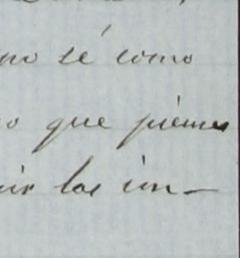 no sé como
o que pienso
ir los im-